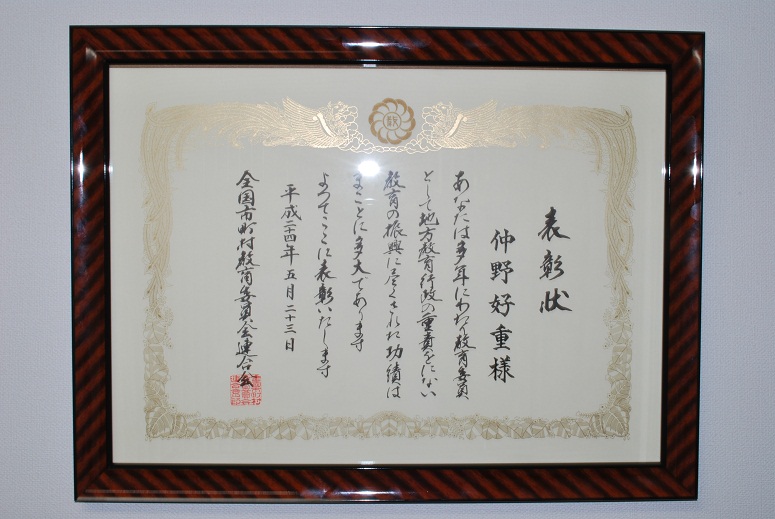 表彰状
仲野好重様
あなたは多年にわたり教育委員
として地方教育行政の重責をにない
教育の振興に尽くされた功績は
まことに多大であります
よってここに表彰いたします
平成二十四年五月二十三日
全国市町村教育委員会連合会